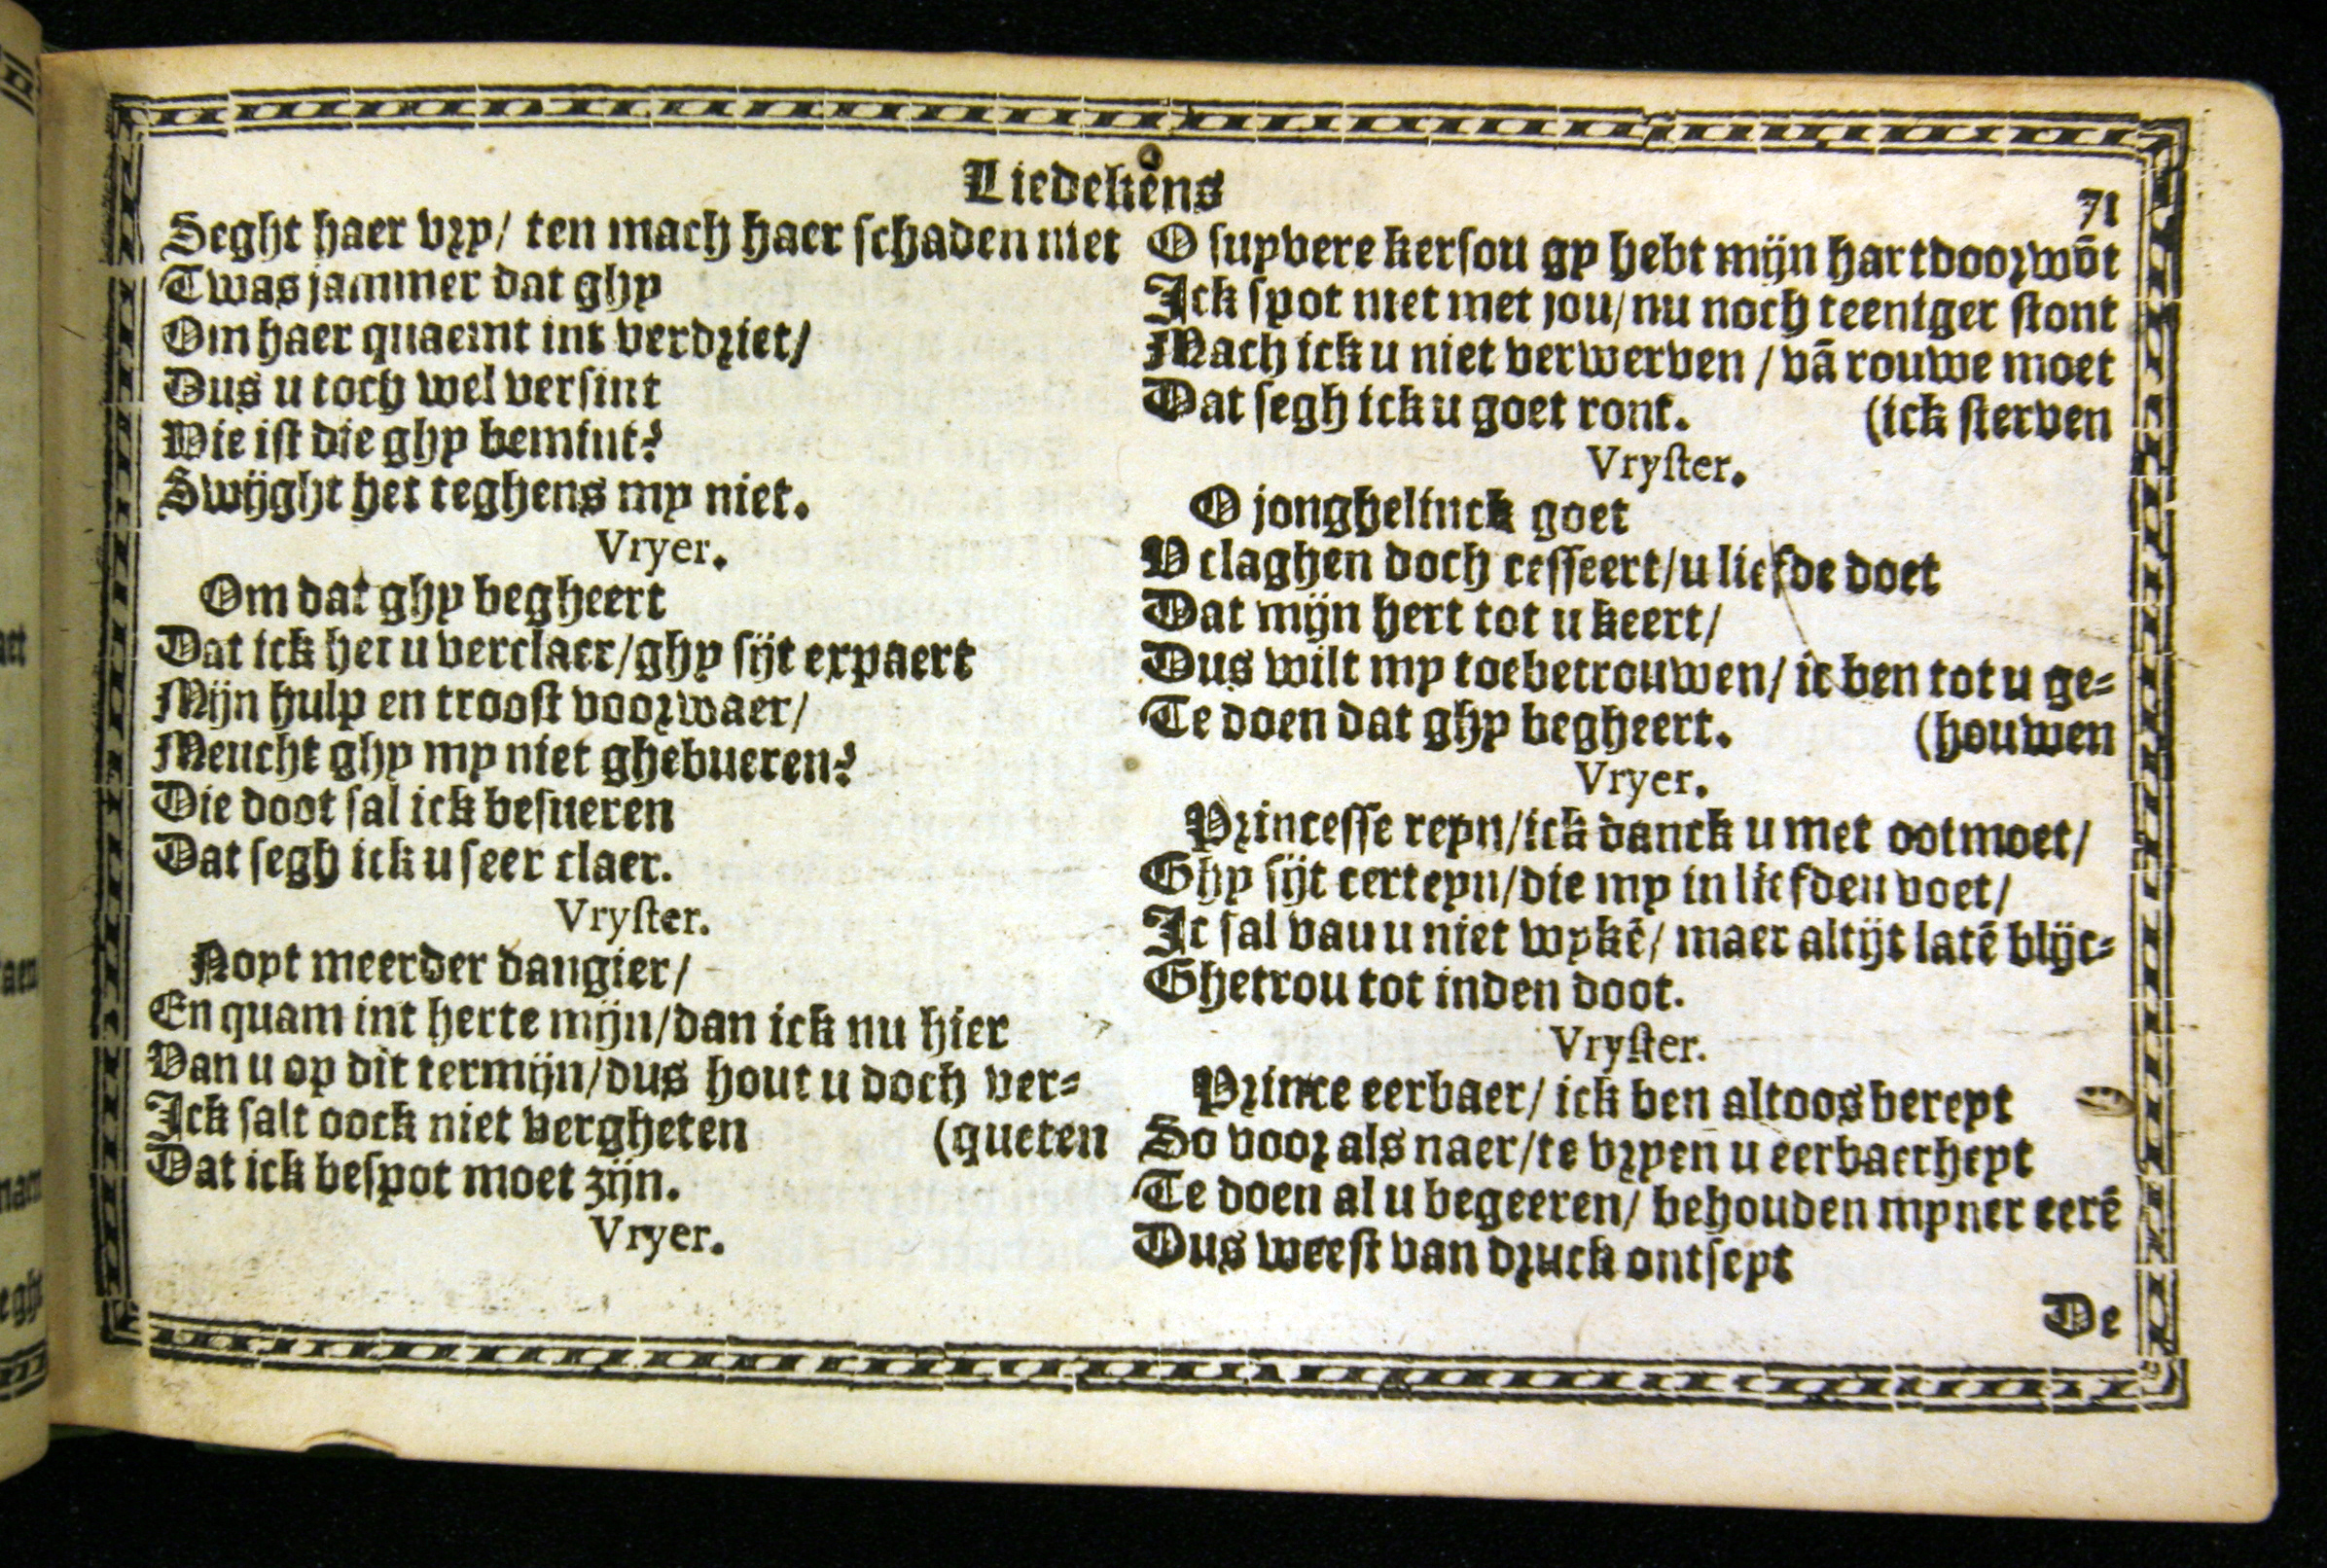 Liedekens
71
Seght haer vry/ ten mach haer schaden niet
Twas jammer dat ghy
Om haer quaemt int verdriet/
Dus u toch wel versint
Wie ist die ghy bemint?
Swijght het teghens my niet.
Vryer.
Om dat ghy begheert
Dat ick het u verclaer/ghy sijt expaert
Mijn hulp en troost voorwaer/
Meucht ghy my niet ghebueren?
Die doot sal ick besueren
Dat segh ick u seer claer.
Vryster.
Noyt meerder dangier/
En quam int herte mijn/dan ick nu hier
Van u op dit termijn/dus hout u doch ver-
Ick salt oock niet vergheten (queten
Dat ick bespot moet zijn.
Vryer.
O suyvere kersou gy hebt mijn hart doorwõt
Ick spot niet met jou/nu noch teeniger stont
Mach ick u niet verwerven / vã rouwe moet
Dat segh ick u goet ront. (ick sterven
Vryster.
O jonghelinck goet
V claghen doch cesseert/u liefde doet
Dat mijn hert tot u keert/
Dus wilt my toebetrouwen/ ic ben tot u ge-
Te doen dat ghy begheert. (houwen
Vryer.
Princesse reyn/ick danck u met ootmoet/
Ghy sijt certeyn/die my in liefden voet/
Ic sal vau u niet wykẽ/ maer altijt latẽ blijc-
Ghetrou tot inden doot.
Vryster.
Prince eerbaer/ ick ben altoos bereyt
So voor als naer/te vryen u eerbaerheyt
Te doen al u begeeren/ behouden myner eerẽ
Dus weest van druck ontseyt
De